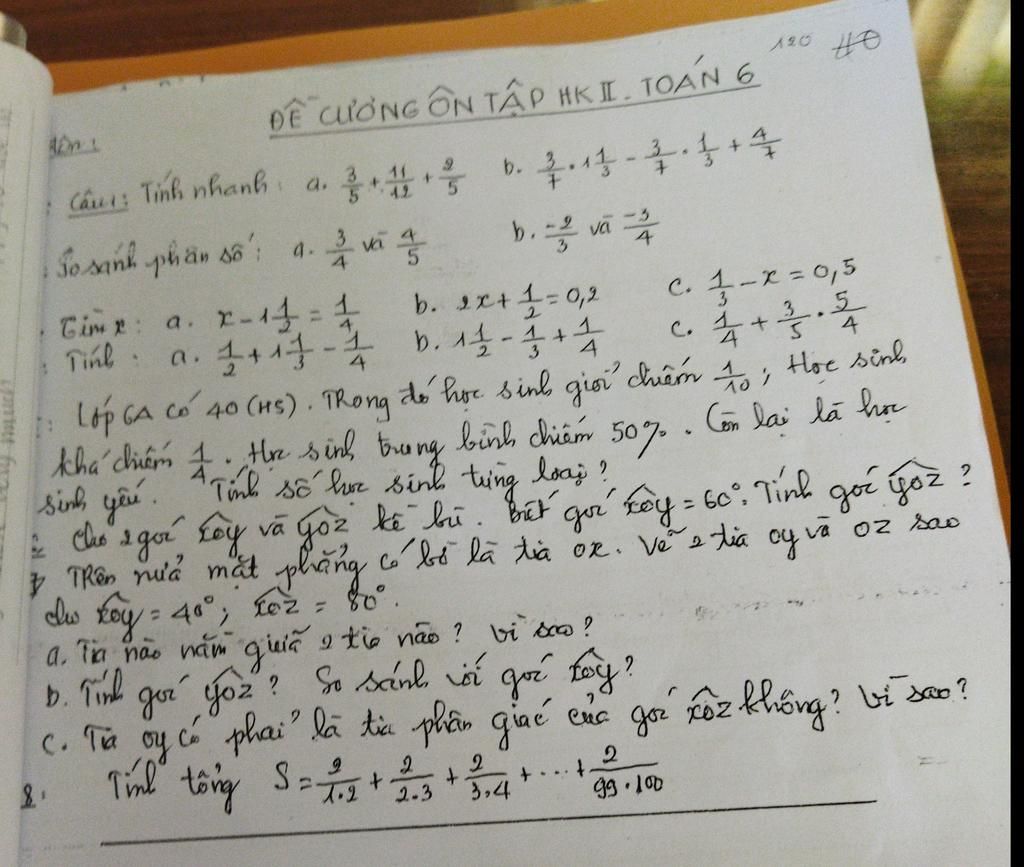 120
ĐỀ CƯƠNG ÔN TẬP HK II - TOÁN 6
Câu 1: Tính nhanh: a. 3/5 + 11/12 + 2/5 b. 3/7 . 1 1/3 - 3/7 . 1/3 + 4/7
: So sánh phân số: a. 3/4 và 4/5 b. -2/3 và -3/4
. Tìm x: a. x - 1 1/2 = 1/4 b. 2x + 1/2 = 0,2 c. 1/3 - x = 0,5
: Tính: a. 1/2 + 1 1/3 - 1/4 b. 1 1/2 - 1/3 + 1/4 c. 1/4 + 3/5 . 5/4
: Lớp 6A có 40 (HS). Trong đó học sinh giỏi chiếm 1/10; Học sinh
khá chiếm 1/4. Học sinh trung bình chiếm 50%. Còn lại là học
sinh yếu. Tính số học sinh từng loại?
: cho 2 góc xOy và yOz kề bù. Biết góc xOy = 60°. Tính góc yOz?
7 Trên nửa mặt phẳng có bờ là tia ox. Vẽ 2 tia oy và oz sao
cho xOy = 40°; xOz = 80°.
a. Tia nào nằm giữa 2 tia nào? Vì sao?
b. Tính góc yOz? So sánh với góc xOy?
c. Tia oy có phải là tia phân giác của góc xOz không? Vì sao?
8: Tính tổng S = 2/1.2 + 2/2.3 + 2/3.4 + ... + 2/99.100